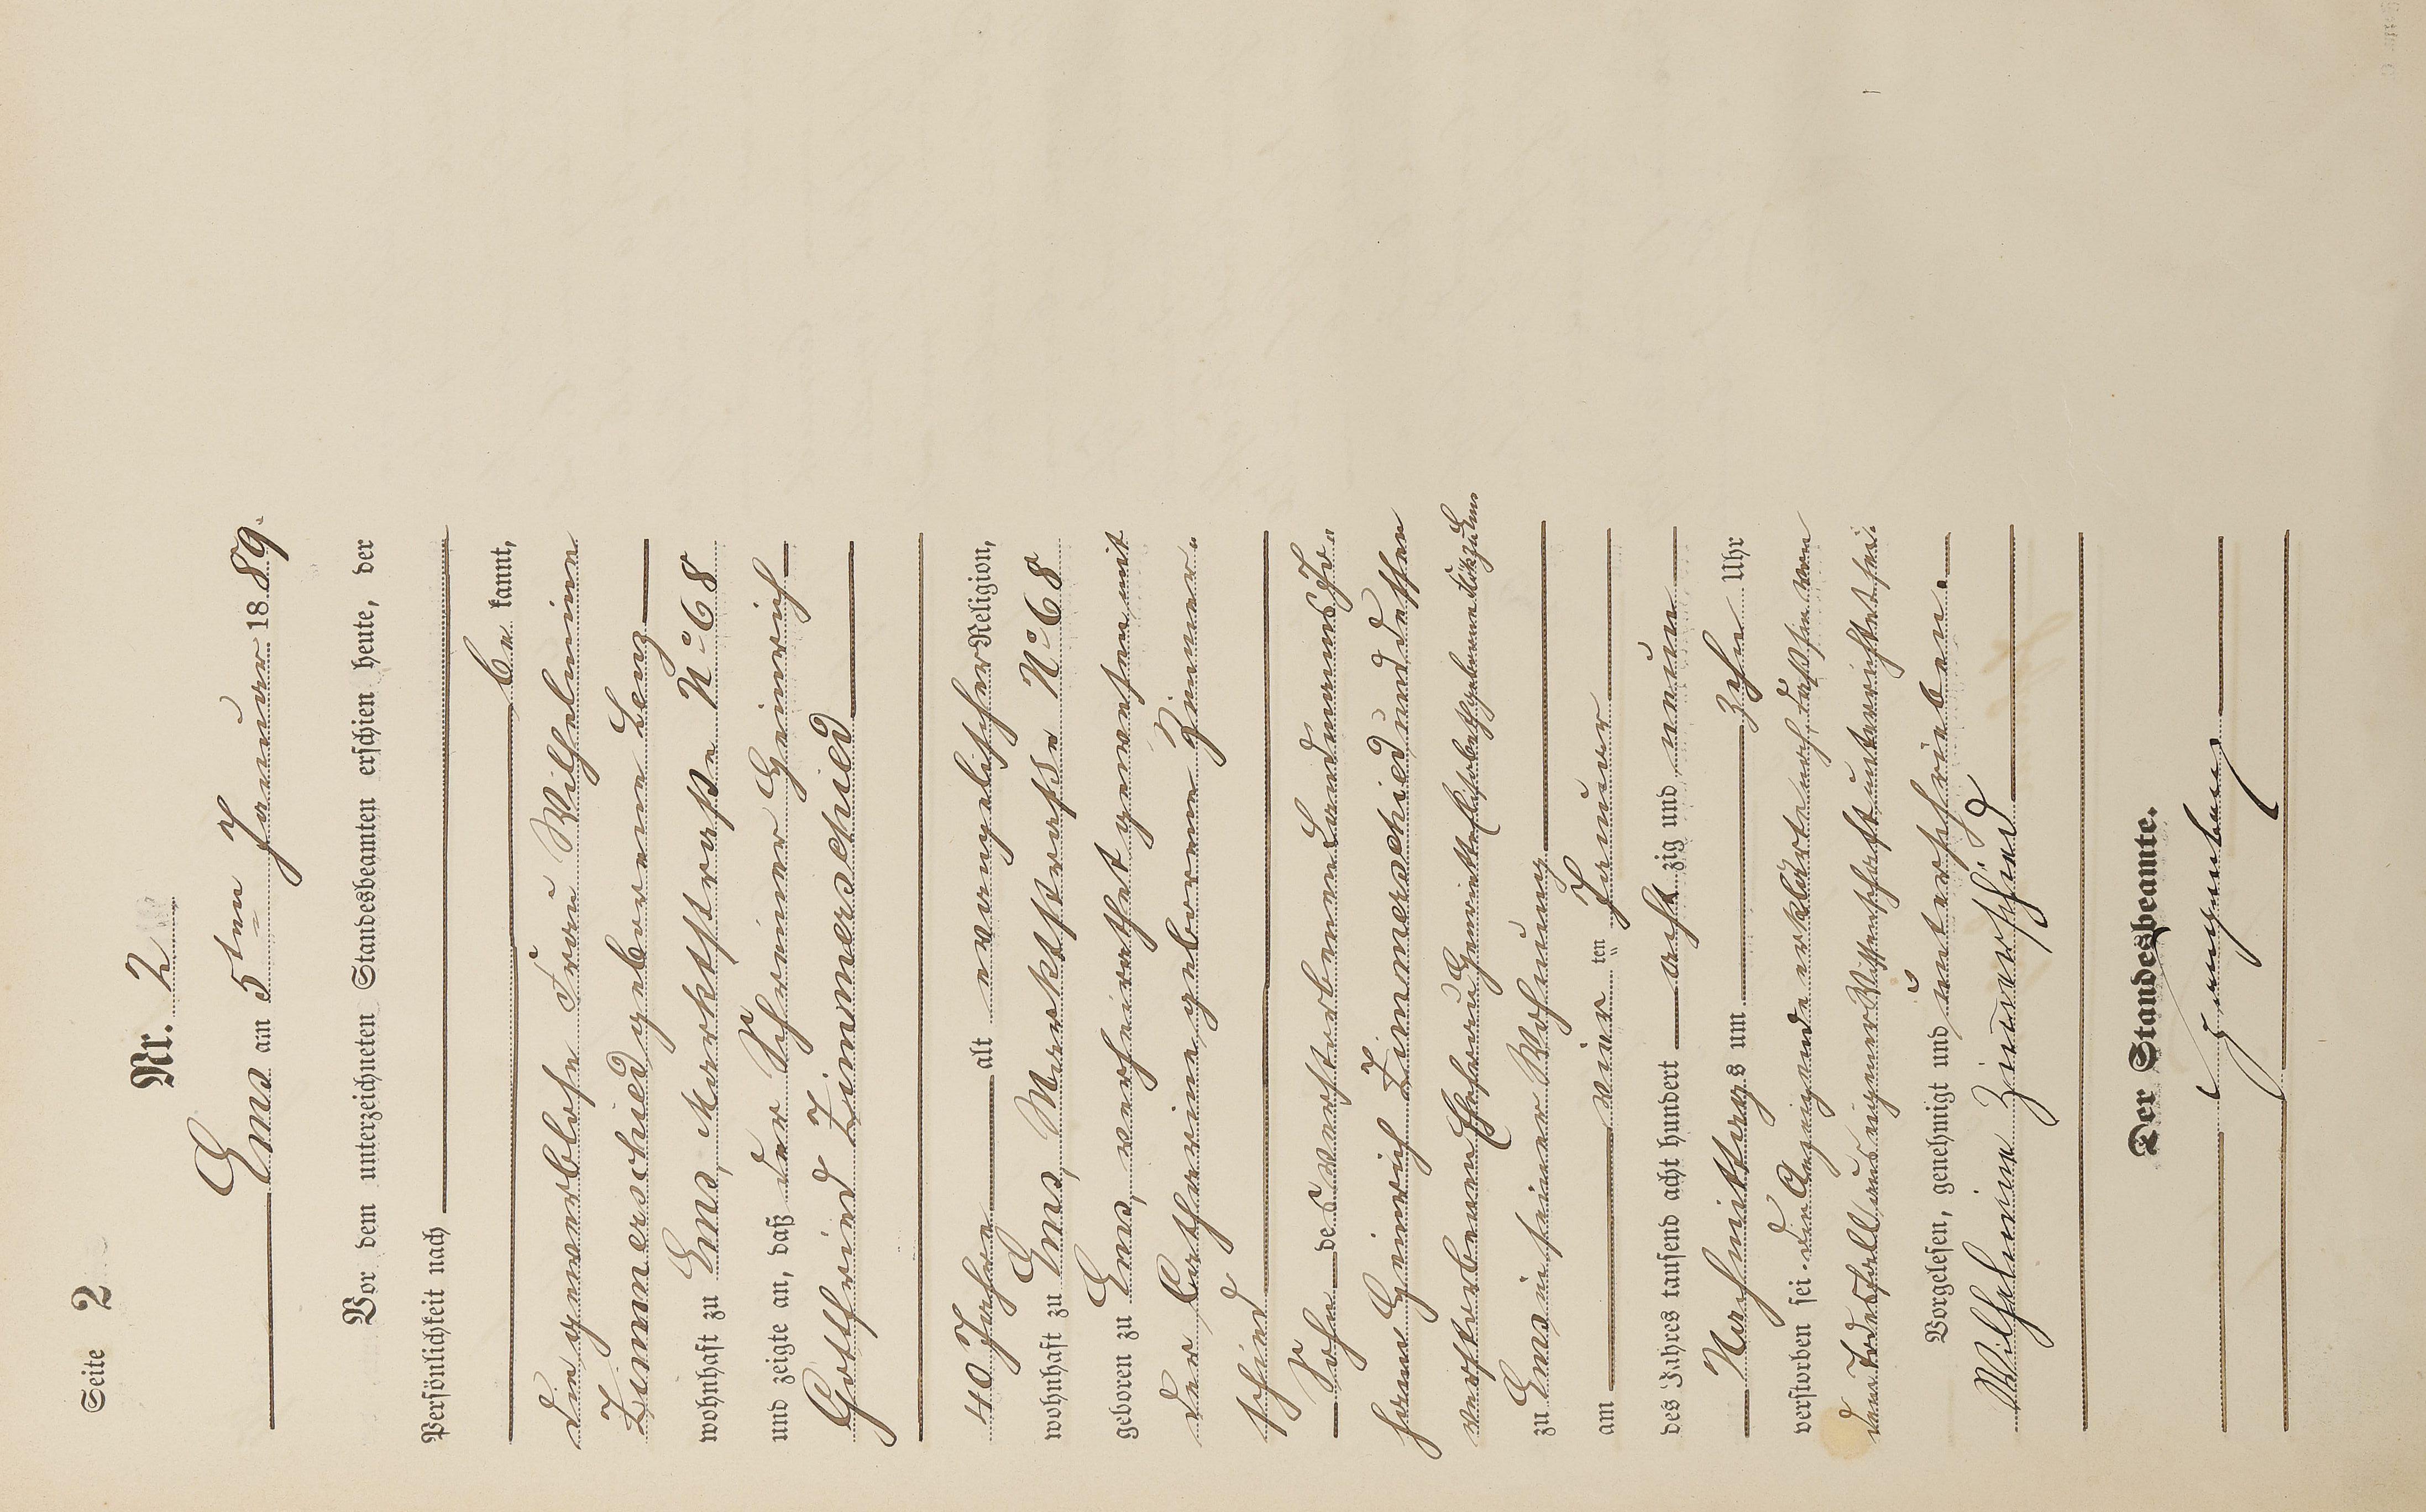 Seite 2
Nr. 2
Ems am 5ten Januar 1889.
Vor dem unterzeichneten Standesbeamten erschien heute, der
Persönlichkeit nach
be kannt,
die gewerblose Frau Wilhelmine
Zimmerschied geborene Lenz
wohnhaft zu Ems, Marktstraße No 68
und zeigte an, daß der Schreiner Heinrich
Gottfried Zimmerschied
40 Jahre alt evangelischer Religion,
wohnhaft zu Ems, Marktstraße No 68
geboren zu Ems, verheirathet gewesen mit
der Catharine geborene Zimmer-
schied
Sohn des verstorbenen Landmanns Jo-
hann Heinrich Zimmerschied und dessen
verstorbenen Ehefrau Henriette Elisabeth geborene zu Ems
zu Ems in seiner Wohnung
am vier ten Januar
des Jahres tausend acht hundert acht zig und neun
Nachmittags um zehn Uhr
verstorben sei. die Anzeigende erklärte noch, daß sie von
dem Todesfall aus eigener Wissenschaft unterrichtet sei.
Vorgelesen, genehmigt und unterschrieben.
Wilhelmine Zimerschied
Der Standesbeamte.